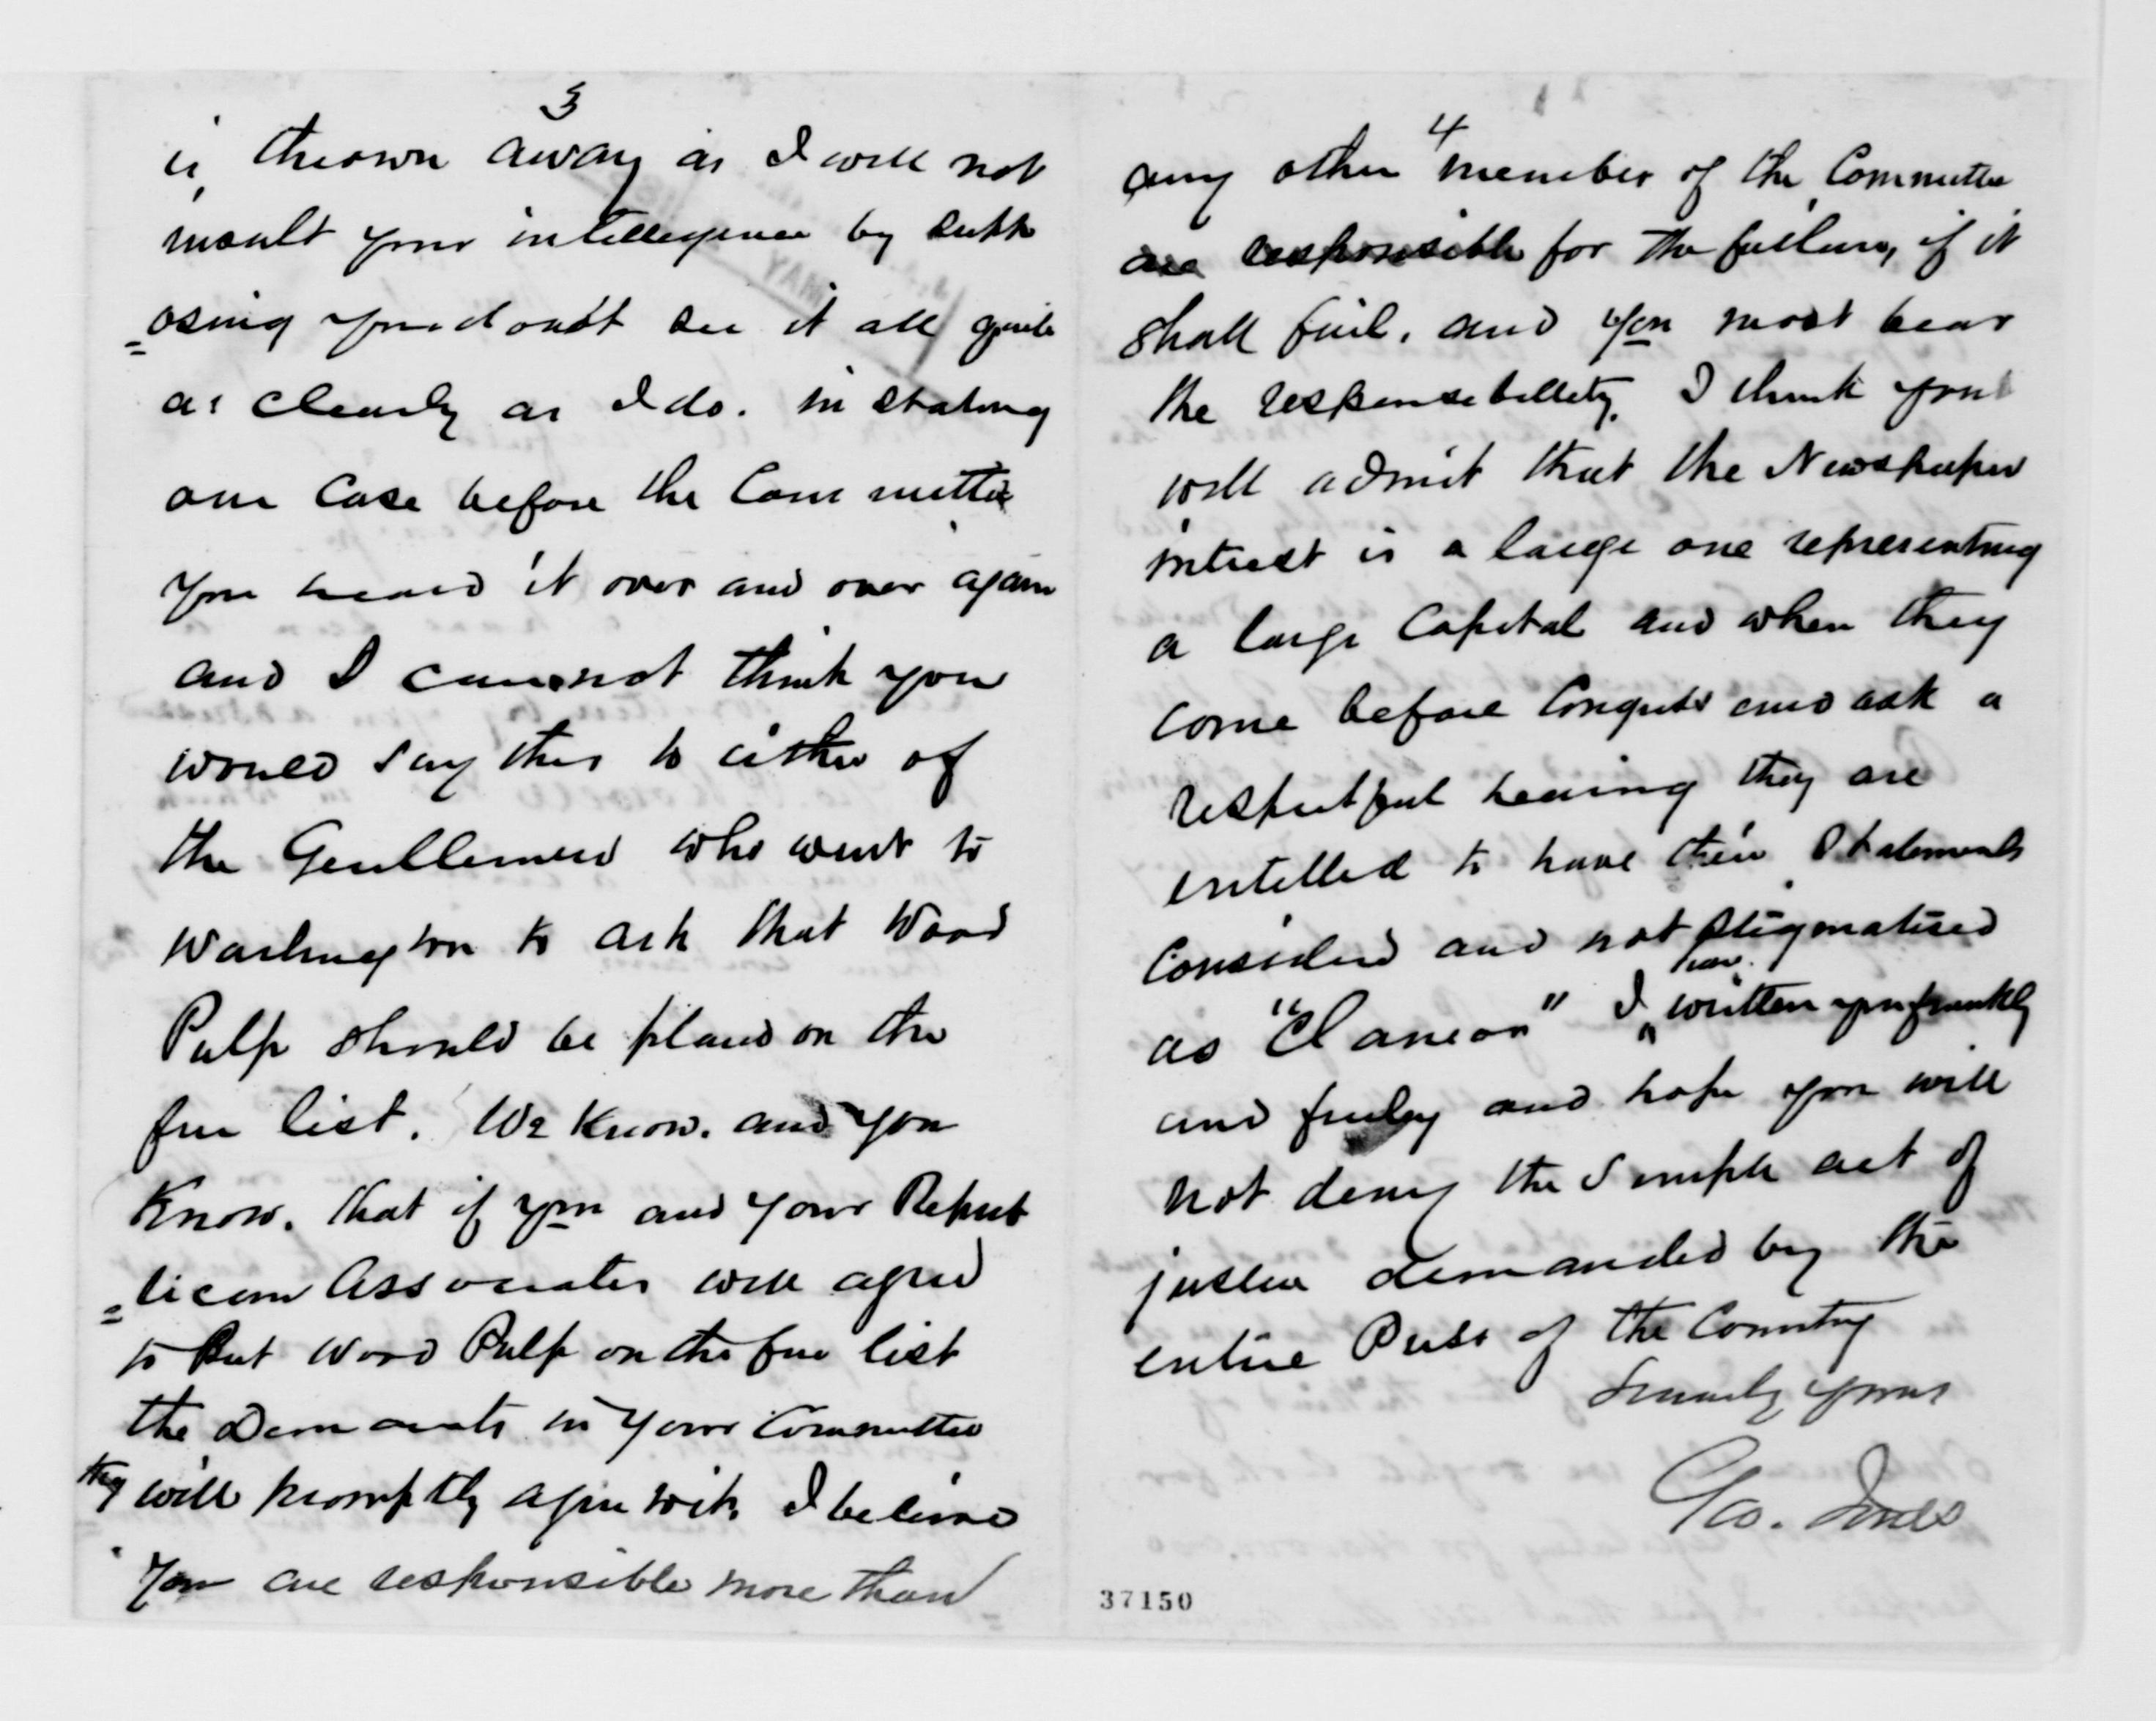 3
is thrown away as I will not
insult your intelligence by supp
=osing you dont see it all quite
as clearly as I do. in stating
our Case before the Committee
You heard it over and over again
and I cannot think you
would say this to either of
the Gentlemen who went to
Washington to ask that Wood
Pulp should be placed on the
free list. We Know. and you
Know. that if you and your Repub
=lican Associates will agree
to Put Wood Pulp on the free list
the Democrats in Your Committee
they will promptly agree with. I believe
You are responsible more than
4
any other member of the Committee
are responsible for the failure, if it
shall fail. and you most bear
the responsebillety. I think you
will admit that the Newspaper
intrest is a large one representing
a large Capital and when they
come before Congress and ask a
respectful hearing they are
entitled to have their Statements
Considered and not stigmatised
as "Clamor" I have written you frankly
and freely and hope you will
not deny the Simple act of
justice demanded by the
entire Press of the Country
Sincerely yours
Geo. Jones
37150